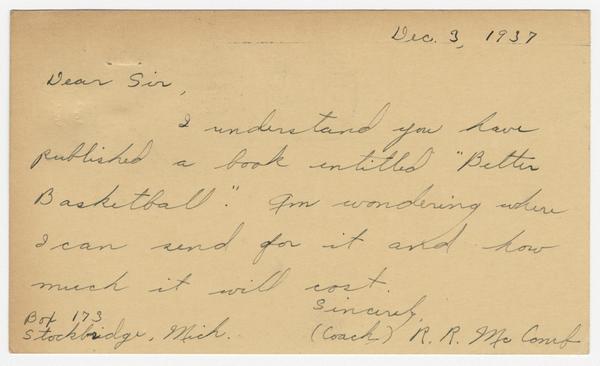 Dec. 3, 1937
Dear Sir,
I understand you have
published a book entitled "Better
Basketball". Am wondering where
I can send for it and how
much it will cost.
Sincerely,
Box 173
Stockbridge, Mich.
(Coach) R. R. McComb